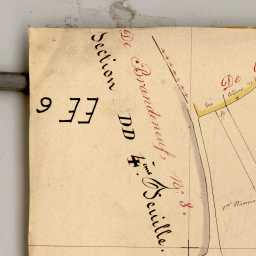 Section DD 4.ème Feuille.
De Brandeneuf, N.º 8.
EE 6
De